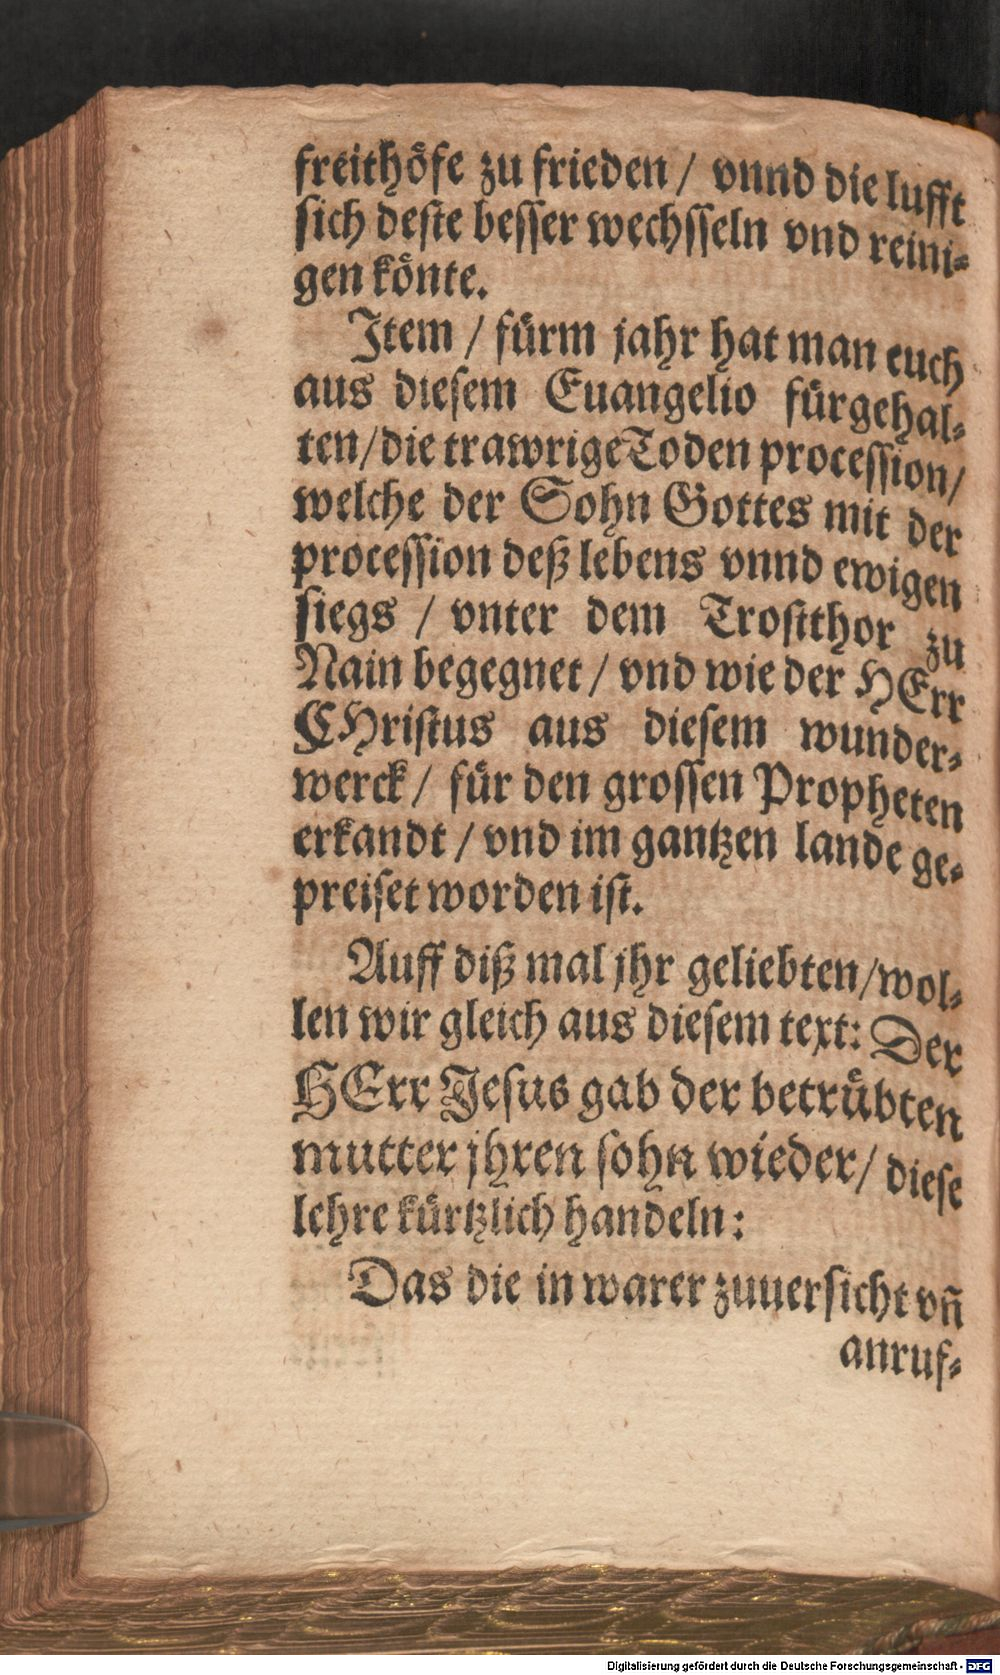 freithöfe zu frieden / vnnd die lufft
sich deste besser wechsseln vnd reini-
gen könte.
Jtem / fürm jahr hat man euch
aus diesem Euangelio fürgehal-
ten/die trawrige Toden procession/
welche der Sohn Gottes mit der
procession deß lebens vnnd ewigen
siegs / vnter dem Trostthor zu
Nain begegnet / vnd wie der HErr
CHristus aus diesem wunder-
werck / für den grossen Propheten
erkandt / vnd im gantzen lande ge-
preiset worden ist.
Auff diß mal jhr geliebten/wol-
len wir gleich aus diesem text: Der
HErr Jesus gab der betrübten
mutter jhren sohn wieder/ diese
lehre kürtzlich handeln:
Das die in warer zuuersicht vñ
anruf-
Digitalisierung gefördert durch die Deutsche Forschungsgemeinschaft - DFG